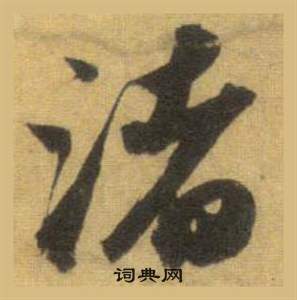 渚
词典网